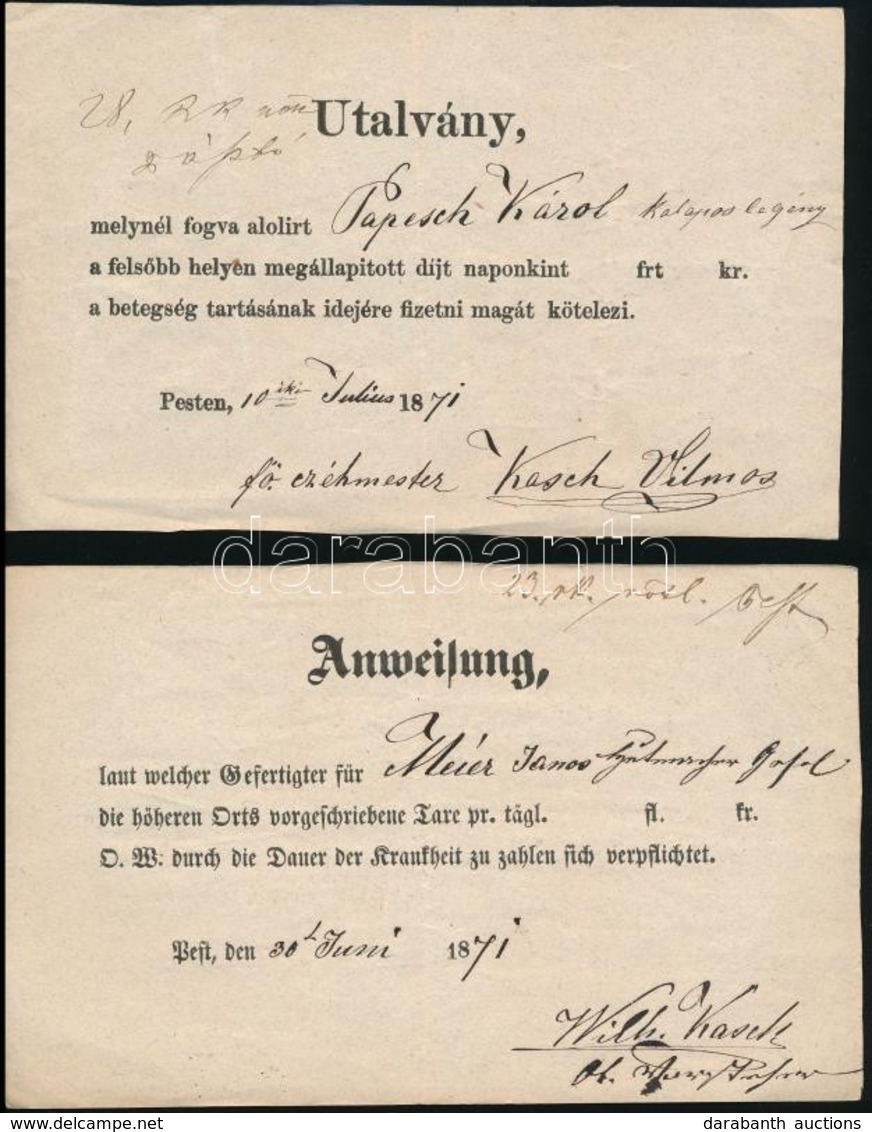 28,
Utalvány,
melynél fogva alolirt Papesch Károl Kalapos legény
a felsőbb helyen megállapitott díjt naponkint frt kr.
a betegség tartásának idejére fizetni magát kötelezi.
Pesten, 10 iki Julius 1871
fő. czéhmester Kasch Vilmos
darabanth
23.
Anweisung,
laut welcher Gefertigter für Meier Janos Hutmacher Gesel
die höheren Orts vorgeschriebene Taxe pr. tägl. fl. kr.
O. W. durch die Dauer der Krankheit zu zahlen sich verpflichtet.
Pest, den 30t Juni 1871
Wilh. Kasch
Ob. Vorsteher
darabanth auctions